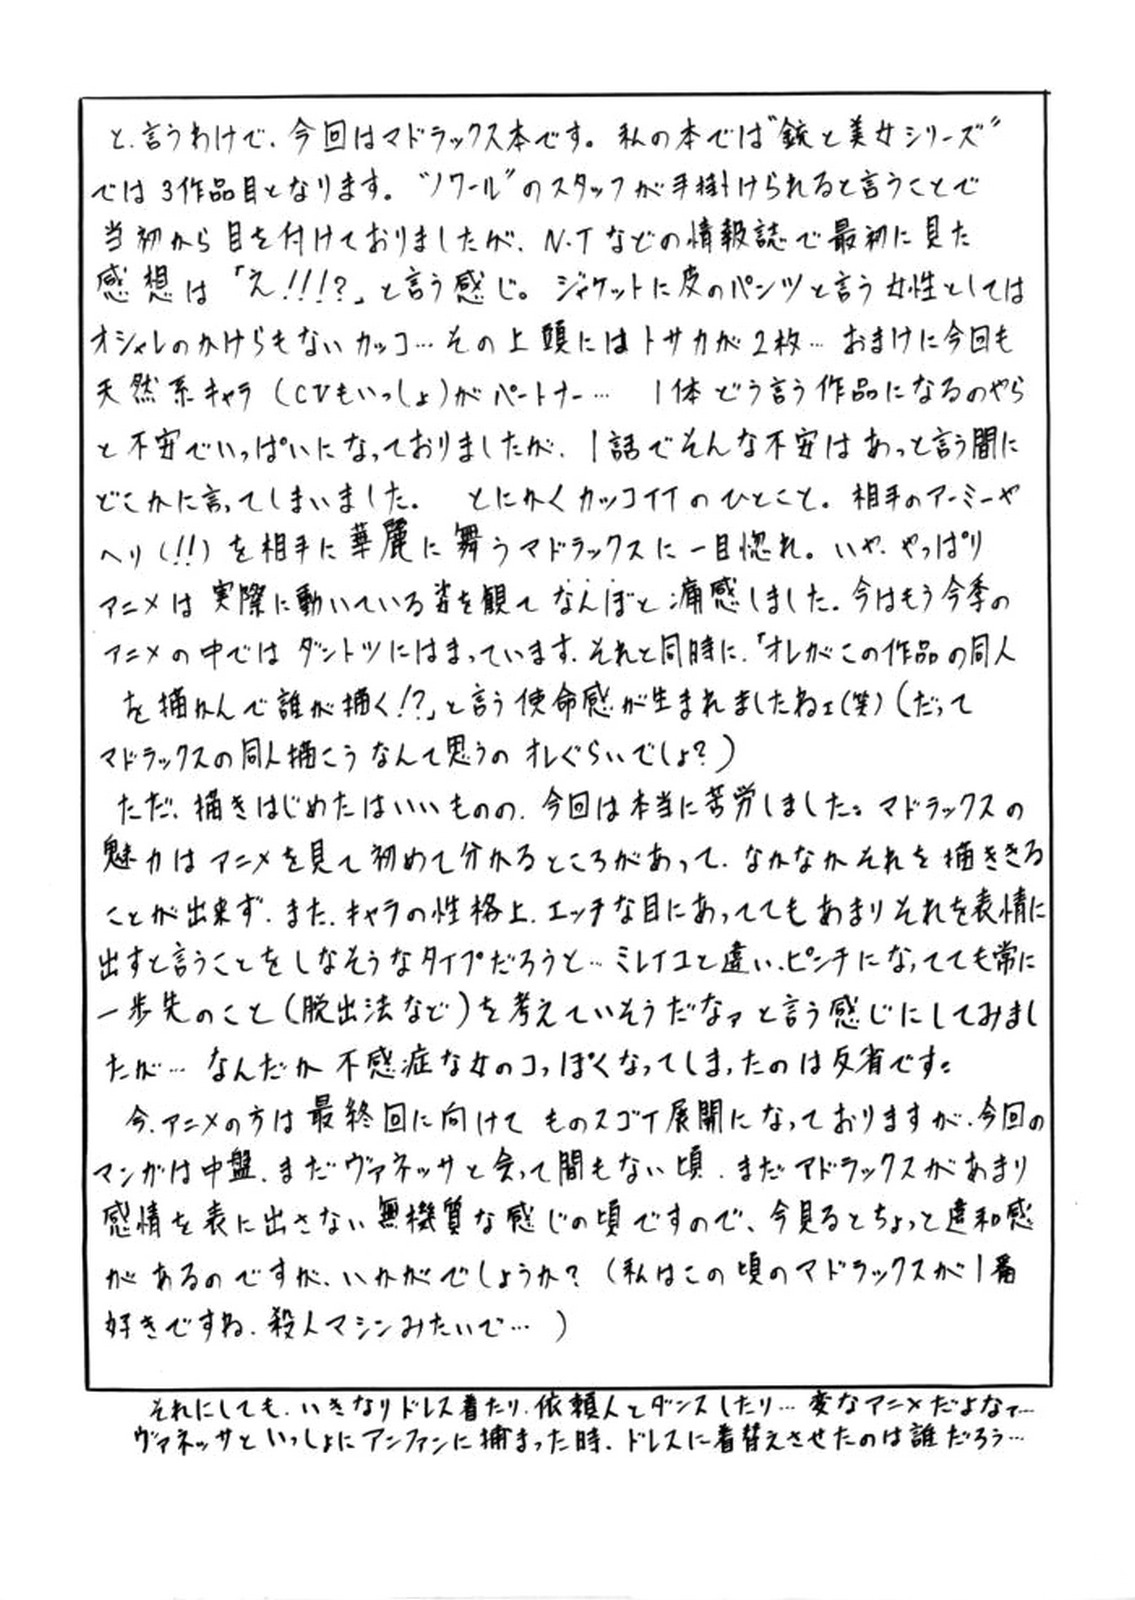 と、言うわけで、今回はマドラックス本です。私の本では“銃と美女シリーズ”
では3作品目となります。“ノワール”のスタッフが手掛けられると言うことで
当初から目を付けておりましたが、N.Tなどの情報誌で最初に見た
感想は「え!!!?」と言う感じ。ジャケットに皮のパンツと言う女性としては
オシャレのかけらもないカッコ…その上頭にはトサカが2枚…おまけに今回も
天然系キャラ(CVもいっしょ)がパートナー… 1体どう言う作品になるのやら
と不安でいっぱいになっておりましたが、1話でそんな不安はあっと言う間に
どこかに言ってしまいました。 とにかくカッコイイのひとこと。相手のアーミーや
ヘリ(!!)を相手に華麗に舞うマドラックスに一目惚れ。いや、やっぱり
アニメは実際に動いている姿を観てなんぼと痛感しました。今はもう今季の
アニメの中ではダントツにはまっています。それと同時に、「オレがこの作品の同人
を描かんで誰が描く!?」と言う使命感が生まれましたねェ(笑)(だって
マドラックスの同人描こうなんて思うのオレぐらいでしょ?)
ただ、描きはじめたはいいものの、今回は本当に苦労しました。マドラックスの
魅力はアニメを見て初めて分かるところがあって、なかなかそれを描ききる
ことが出来ず、また、キャラの性格上、エッチな目にあっててもあまりそれを表情に
出すと言うことをしなそうなタイプだろうと…ミレイユと違い、ピンチになってても常に
一歩先のこと(脱出法など)を考えていそうだなァと言う感じにしてみまし
たが…なんだか不感症な女のコっぽくなってしまったのは反省です。
今、アニメの方は最終回に向けてものスゴイ展開になっておりますが、今回の
マンガは中盤、まだヴァネッサと会って間もない頃、まだマドラックスがあまり
感情を表に出さない無機質な感じの頃ですので、今見るとちょっと違和感
があるのですが、いかがでしょうか?(私はこの頃のマドラックスが1番
好きですね、殺人マシンみたいで…)
それにしても、いきなりドレス着たり、依頼人とダンスしたり…変なアニメだよなァ…
ヴァネッサといっしょにアンファンに捕まった時、ドレスに着替えさせたのは誰だろう…